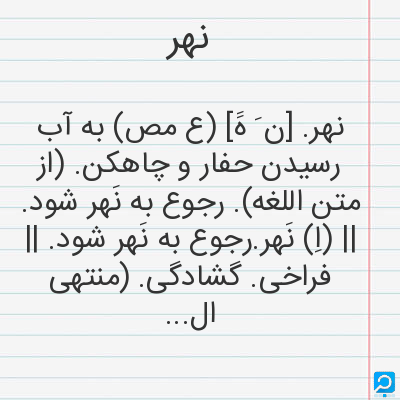 نهر
نهر. [ن َ هََ] (ع مص) به آب
رسیدن حفار و چاهکن. (از
متن اللغه). رجوع به نَهر شود.
|| (اِ) نَهر.رجوع به نَهر شود. ||
فراخی. گشادگی. (منتهی
ال...